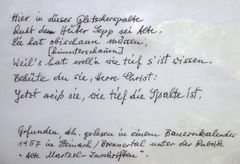 Hier in dieser Gletscherspalte
Ruht dem Hüter Sepp sei Alte.
Sie hat obischaun müssen,
[hinunterschauen]
Weil's hat wolln wie tief s'ist wissen.
Behüte du sie, Herre Christ:
Jetzt weiß sie, wie tief die Spalte ist.
Gefunden bh. gelesen in einem Bauernkalender
1957 in Steinach / Brennertal unter der Rubrik
"Alte Marterl-Inschriften".